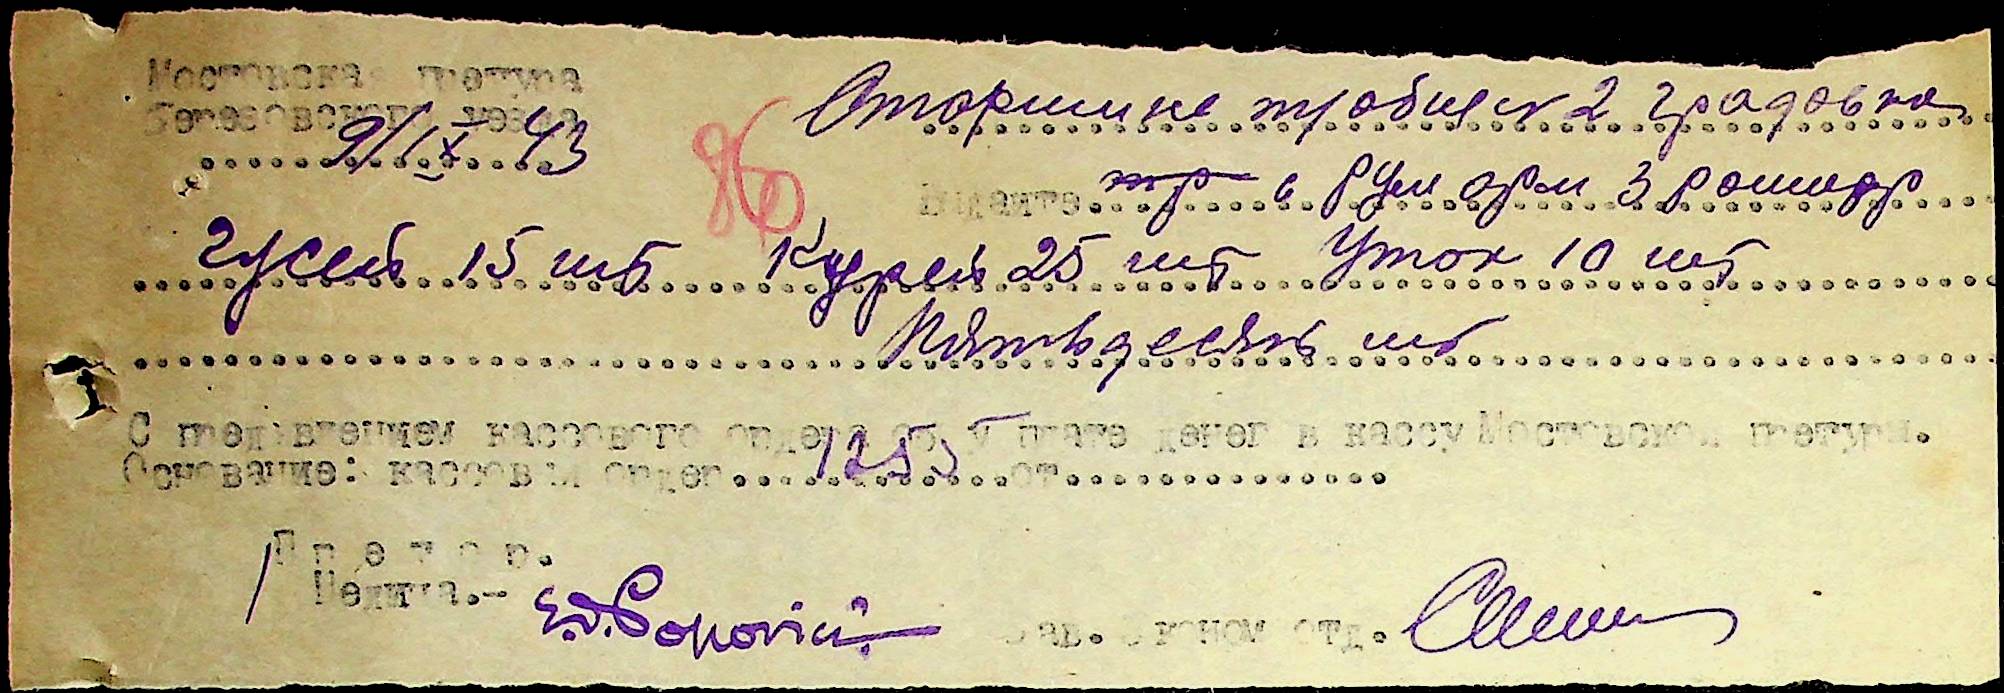 Мостовская претура
Березовского уезда
9/IX 43
86
Старшине трудовой 2 Градовка
Выдайте тр с Рум арм 3
гусей 15 шт Курей 25 шт Уток 10 шт
Пятьдесять шт
С предъявлением кассового ордера об уплате денег в кассу Мостовской претуры.
Основание: кассовый ордер 1255 от
Претор.
Зав. Эконом отд.